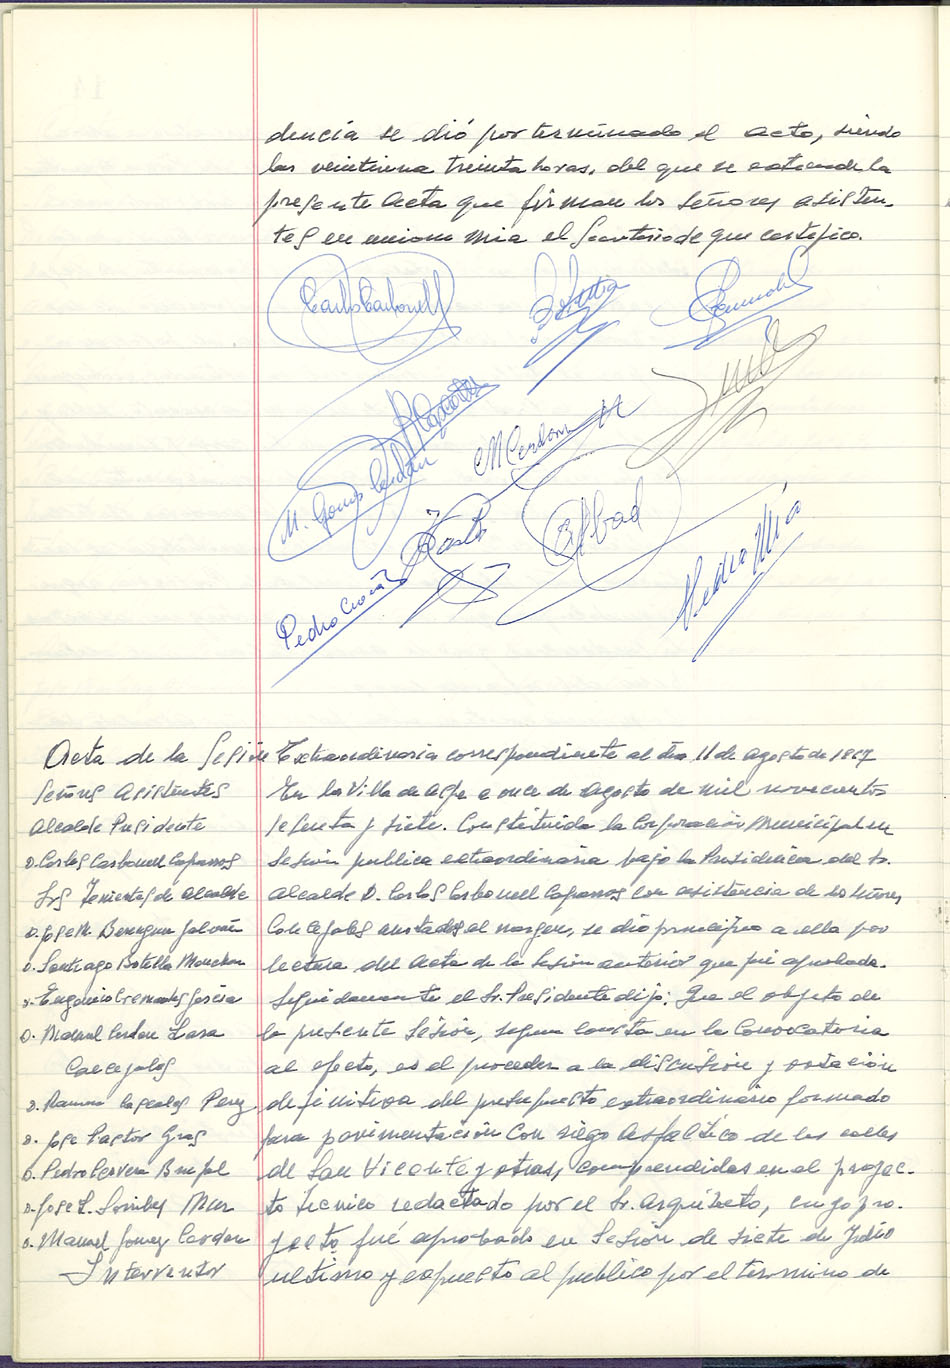 dencia se dió por terminado el acto, siendo
las veintiuna treinta horas, del que se extiende la
presente Acta que firman los señores asisten-
tes en union mia el Secretario de que certifico.
Carlos Carbonell
M. Gomez Cerdán
M Cerdan
Pedro
Pastor
Abad
Pedro Mira
Acta de la Sesión Extraordinaria correspondiente al dia 11 de Agosto de 1967
Señores Asistentes
Alcalde Presidente
D. Carlos Carbonell Caparros
Srs Tenientes de Alcalde
D. Jose M. Berenguer Galvañ
D. Santiago Botella Manchon
D. Eugenio Cremades Garcia
D. Manuel Cerdan Lara
Concejales
D. Ramon Perez
D. Jose Pastor Gras
D. Pedro Cervera
D. Jose L.
D. Manuel Gomez Cerdan
Interventor
En la Villa de Aspe a once de Agosto de mil novecientos
sesenta y siete. Constituida la Corporación Municipal en
Sesión publica extraordinaria bajo la Presidencia del Sr.
Alcalde D. Carlos Carbonell Caparros con asistencia de los señores
Concejales anotados al margen, se dió principio a ella por
lectura del Acta de la Sesión anterior que fué aprobada.
Seguidamente el Sr. Presidente dijo: Que el objeto de
la presente Sesión, segun consta en la Convocatoria
al efecto, es el proceder a la discusión y votación
definitiva del presupuesto extraordinario formado
para pavimentación con riego Asfaltico de las calles
de San Vicente y otras, comprendidas en el proyec-
to tecnico redactado por el Sr. Arquitecto, cuyo pro-
yecto fué aprobado en Sesión de siete de Julio
ultimo y expuesto al publico por el termino de